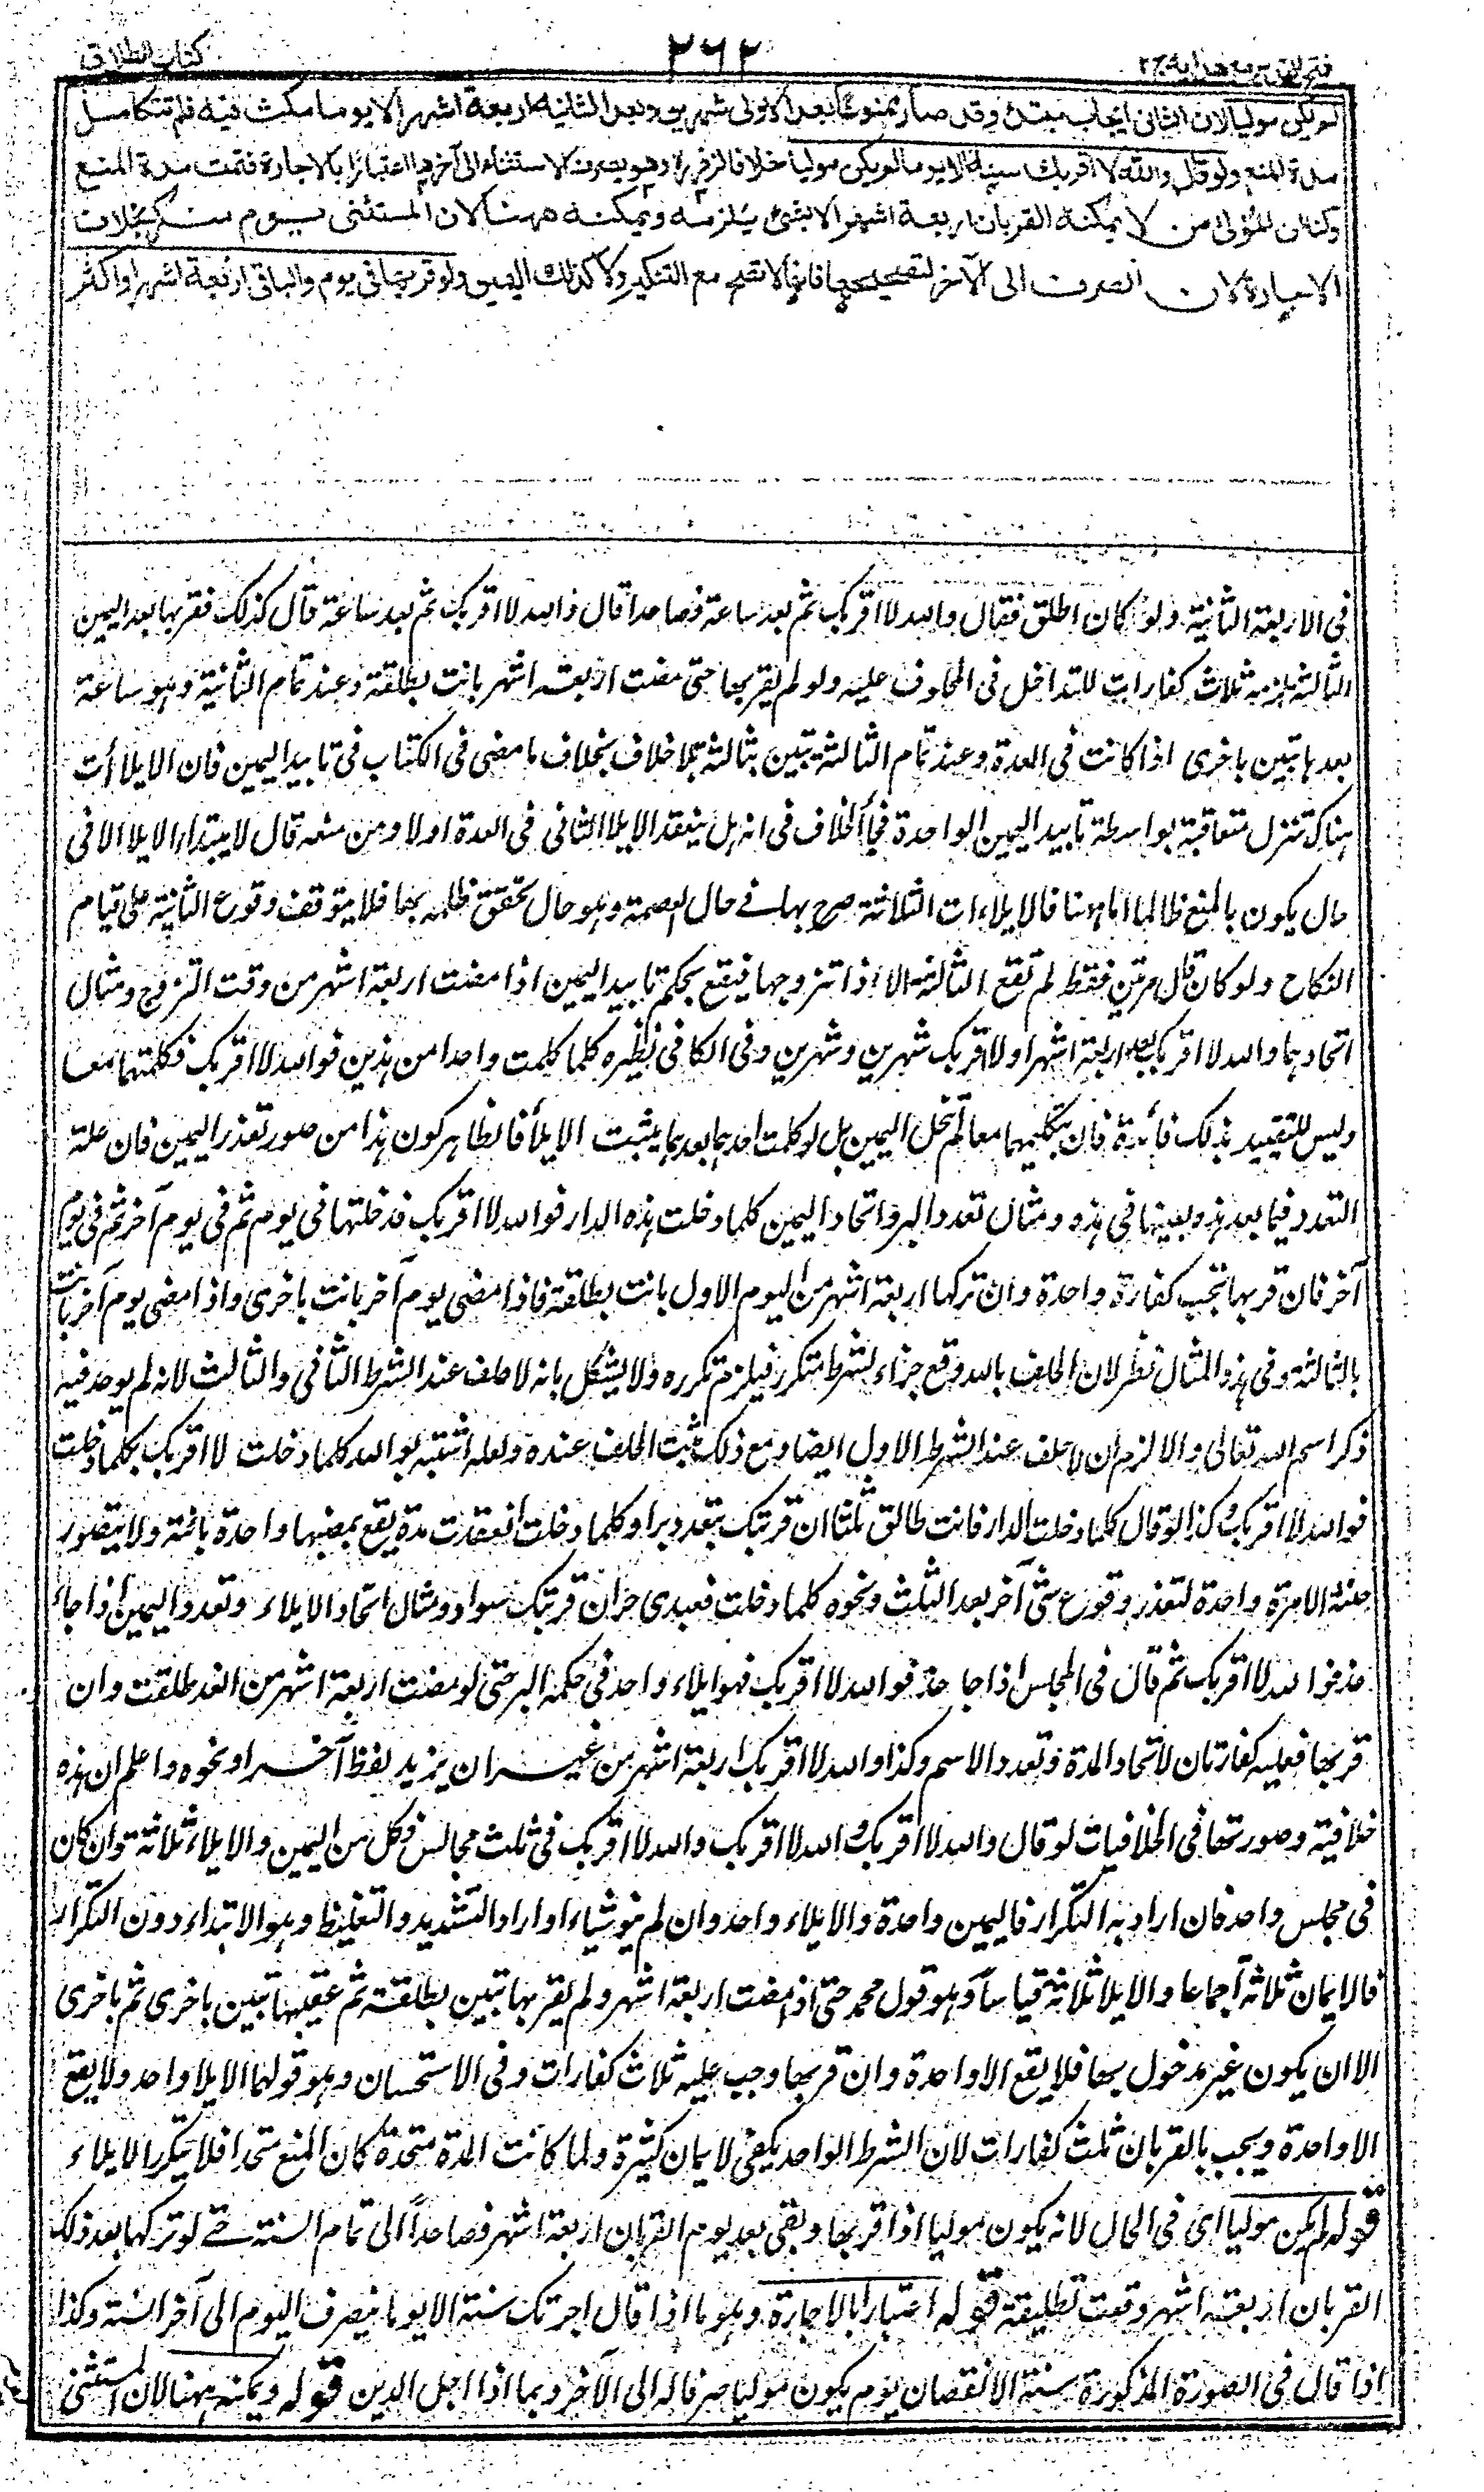 فتح القدير مع هداية ج٢
٢٦٢
كتاب الطلاق
لم يكن موليا لان الثاني ايجاب مبتدأ وقد صار ممنوعا بعد الاولى شهرين وبعد الثانية اربعة اشهر الا يوما مكث فيه فلم تتكامل
مدة المنع ولو قال والله لا اقربك سنة الا يوما لم يكن موليا خلافا لزفر هو يصرف الاستثناء الى آخرها اعتبارا بالاجارة فتمت مدة المنع
ولنا ان المولى من لا يمكنه القربان اربعة اشهر الا بشئ يلزمه ويمكنه ههنا لان المستثنى يوم منكر بخلاف
الاجارة لان الصرف الى الآخر لتصحيحها فانها لا تصح مع التنكير ولا كذلك اليمين ولو قربها في يوم والباقي اربعة اشهر او اكثر
في الاربعة الثانية ولو كان اطلق فقال والله لا اقربك ثم بعد ساعة فصاعدا قال والله لا اقربك ثم بعد ساعة قال كذلك فقربها بعد اليمين
الثالثة لزمه ثلاث كفارات للتداخل في المحلوف عليه ولو لم يقربها حتى مضت اربعة اشهر بانت بطلقة وعند تمام الثانية وهو ساعة
بعدها تبين باخرى اذا كانت في العدة وعند تمام الثالثة تبين بثالثة بلا خلاف بخلاف ما مضى في الكتاب في تابيد اليمين فان الايلاآت
هناك تنزل متعاقبة بواسطة تابيد اليمين الواحدة فجاء الخلاف في انه هل ينعقد الايلا الثاني في العدة اولا ومن منعه قال لا يبتداء الايلا الا في
حال يكون بالمنع ظالما اما ههنا فالايلاءات الثلاثة صرح بها في حال العصمة وهو حال تحقق ظلمه بها فلا يتوقف وقوع الثانية على قيام
النكاح ولو كان قال مرتين فقط لم تقع الثالثة الا اذا تزوجها فيقع بحكم تابيد اليمين اذا مضت اربعة اشهر من وقت التزوج ومثال
اتحادهما والله لا اقربك اربعة اشهر او لا اقربك شهرين وشهرين وفي الكافي نظيره كلما كلمت واحدا من هذين فوالله لا اقربك فكلمتهما معا
وليس للتقييد بذلك فائدة فان بتكليمهما معا لم تنحل اليمين بل لو كلمت احدهما بعدهما يثبت الايلاء فالظاهر كون هذا من صور تعذر اليمين فان علة
التعدد فيما بعد هذه بعينها في هذه ومثال تعدد البر واتحاد اليمين كلما دخلت هذه الدار فوالله لا اقربك فدخلتها في يوم ثم في يوم آخر ثم في يوم
آخر فان قربها تجب كفارة واحدة وان تركها اربعة اشهر من اليوم الاول بانت بطلقة فاذا مضى يوم آخر بانت باخرى واذا مضى يوم آخر بانت
بالثالثة وفي هذه المثال نظر لان الحلف بالله وقع جزاء لشرط متكرر فيلزم تكرره ولا يشكل بانه لا حلف عند الشرط الثاني والثالث لانه لم يوجد فيه
ذكر اسم الله تعالى والا لزم ان لا حلف عند الشرط الاول ايضا ومع ذلك ثبت الحلف عنده ولعله اشتبه بوالله كلما دخلت لا اقربك بكلما دخلت
فوالله لا اقربك وكذا لو قال كلما دخلت الدار فانت طالق ثلثا ان قربتك يتعدد برا وكلما دخلت انعقدت مدة يقع بمضيها واحدة بائنة ولا يتصور
حنثه الا مرة واحدة لتعذر وقوع شئ آخر بعد الثلث ونحوه كلما دخلت فعبدى حر ان قربتك سواد ومثال اتحاد الايلاء وتعدد اليمين اذا جاء
غد فوالله لا اقربك ثم قال في المجلس اذا جاء غد فوالله لا اقربك فهو ايلاء واحد في حكمه البر حتى لو مضت اربعة اشهر من الغد طلقت وان
قربها فعليه كفارتان لاتحاد المدة وتعدد الاسم وكذا والله لا اقربك اربعة اشهر من غير ان يزيد لفظ آخر او نحوه واعلم ان هذه
خلافية وصورتها في الخلافيات لو قال والله لا اقربك والله لا اقربك والله لا اقربك في ثلث مجالس فكل من اليمين والايلاء ثلاثة وان كان
في مجلس واحد فان اراد به التكرار فاليمين واحدة والايلاء واحد وان لم ينو شيئا او اراد التشديد والتغليظ وهو الابتداء دون التكرار
فالايمان ثلاثة اجماعا والايلا ثلاثة قياسا وهو قول محمد حتى اذا مضت اربعة اشهر ولم يقربها تبين بطلقة ثم عقيبها تبين باخرى ثم باخرى
الا ان يكون غير مدخول بها فلا يقع الا واحدة وان قربها وجب عليه ثلاث كفارات وفي الاستحسان وهو قولهما الايلا واحد ولا يقع
الا واحدة ويجب بالقربان ثلث كفارات لان الشرط الواحد يكفى لايمان كثيرة ولما كانت المدة متحدة كان المنع متحدا فلا يتكرر الايلاء
قوله لم يكن موليا اى في الحال لانه يكون موليا اذا قربها وبقى بعد يوم القربان اربعة اشهر فصاعدا الى تمام السنة حتى لو تركها بعد ذلك
القربان اربعة اشهر وقعت تطليقة قوله اعتبارا بالاجارة وهو ما اذا قال اجرتك سنة الا يوما ينصرف اليوم الى آخر السنة وكذا
اذا قال في الصورة المذكورة سنة الا نقصان يوم يكون موليا صرفا له الى الآخر وبما اذا اجل الدين قوله ويمكنه ههنا لان المستثنى